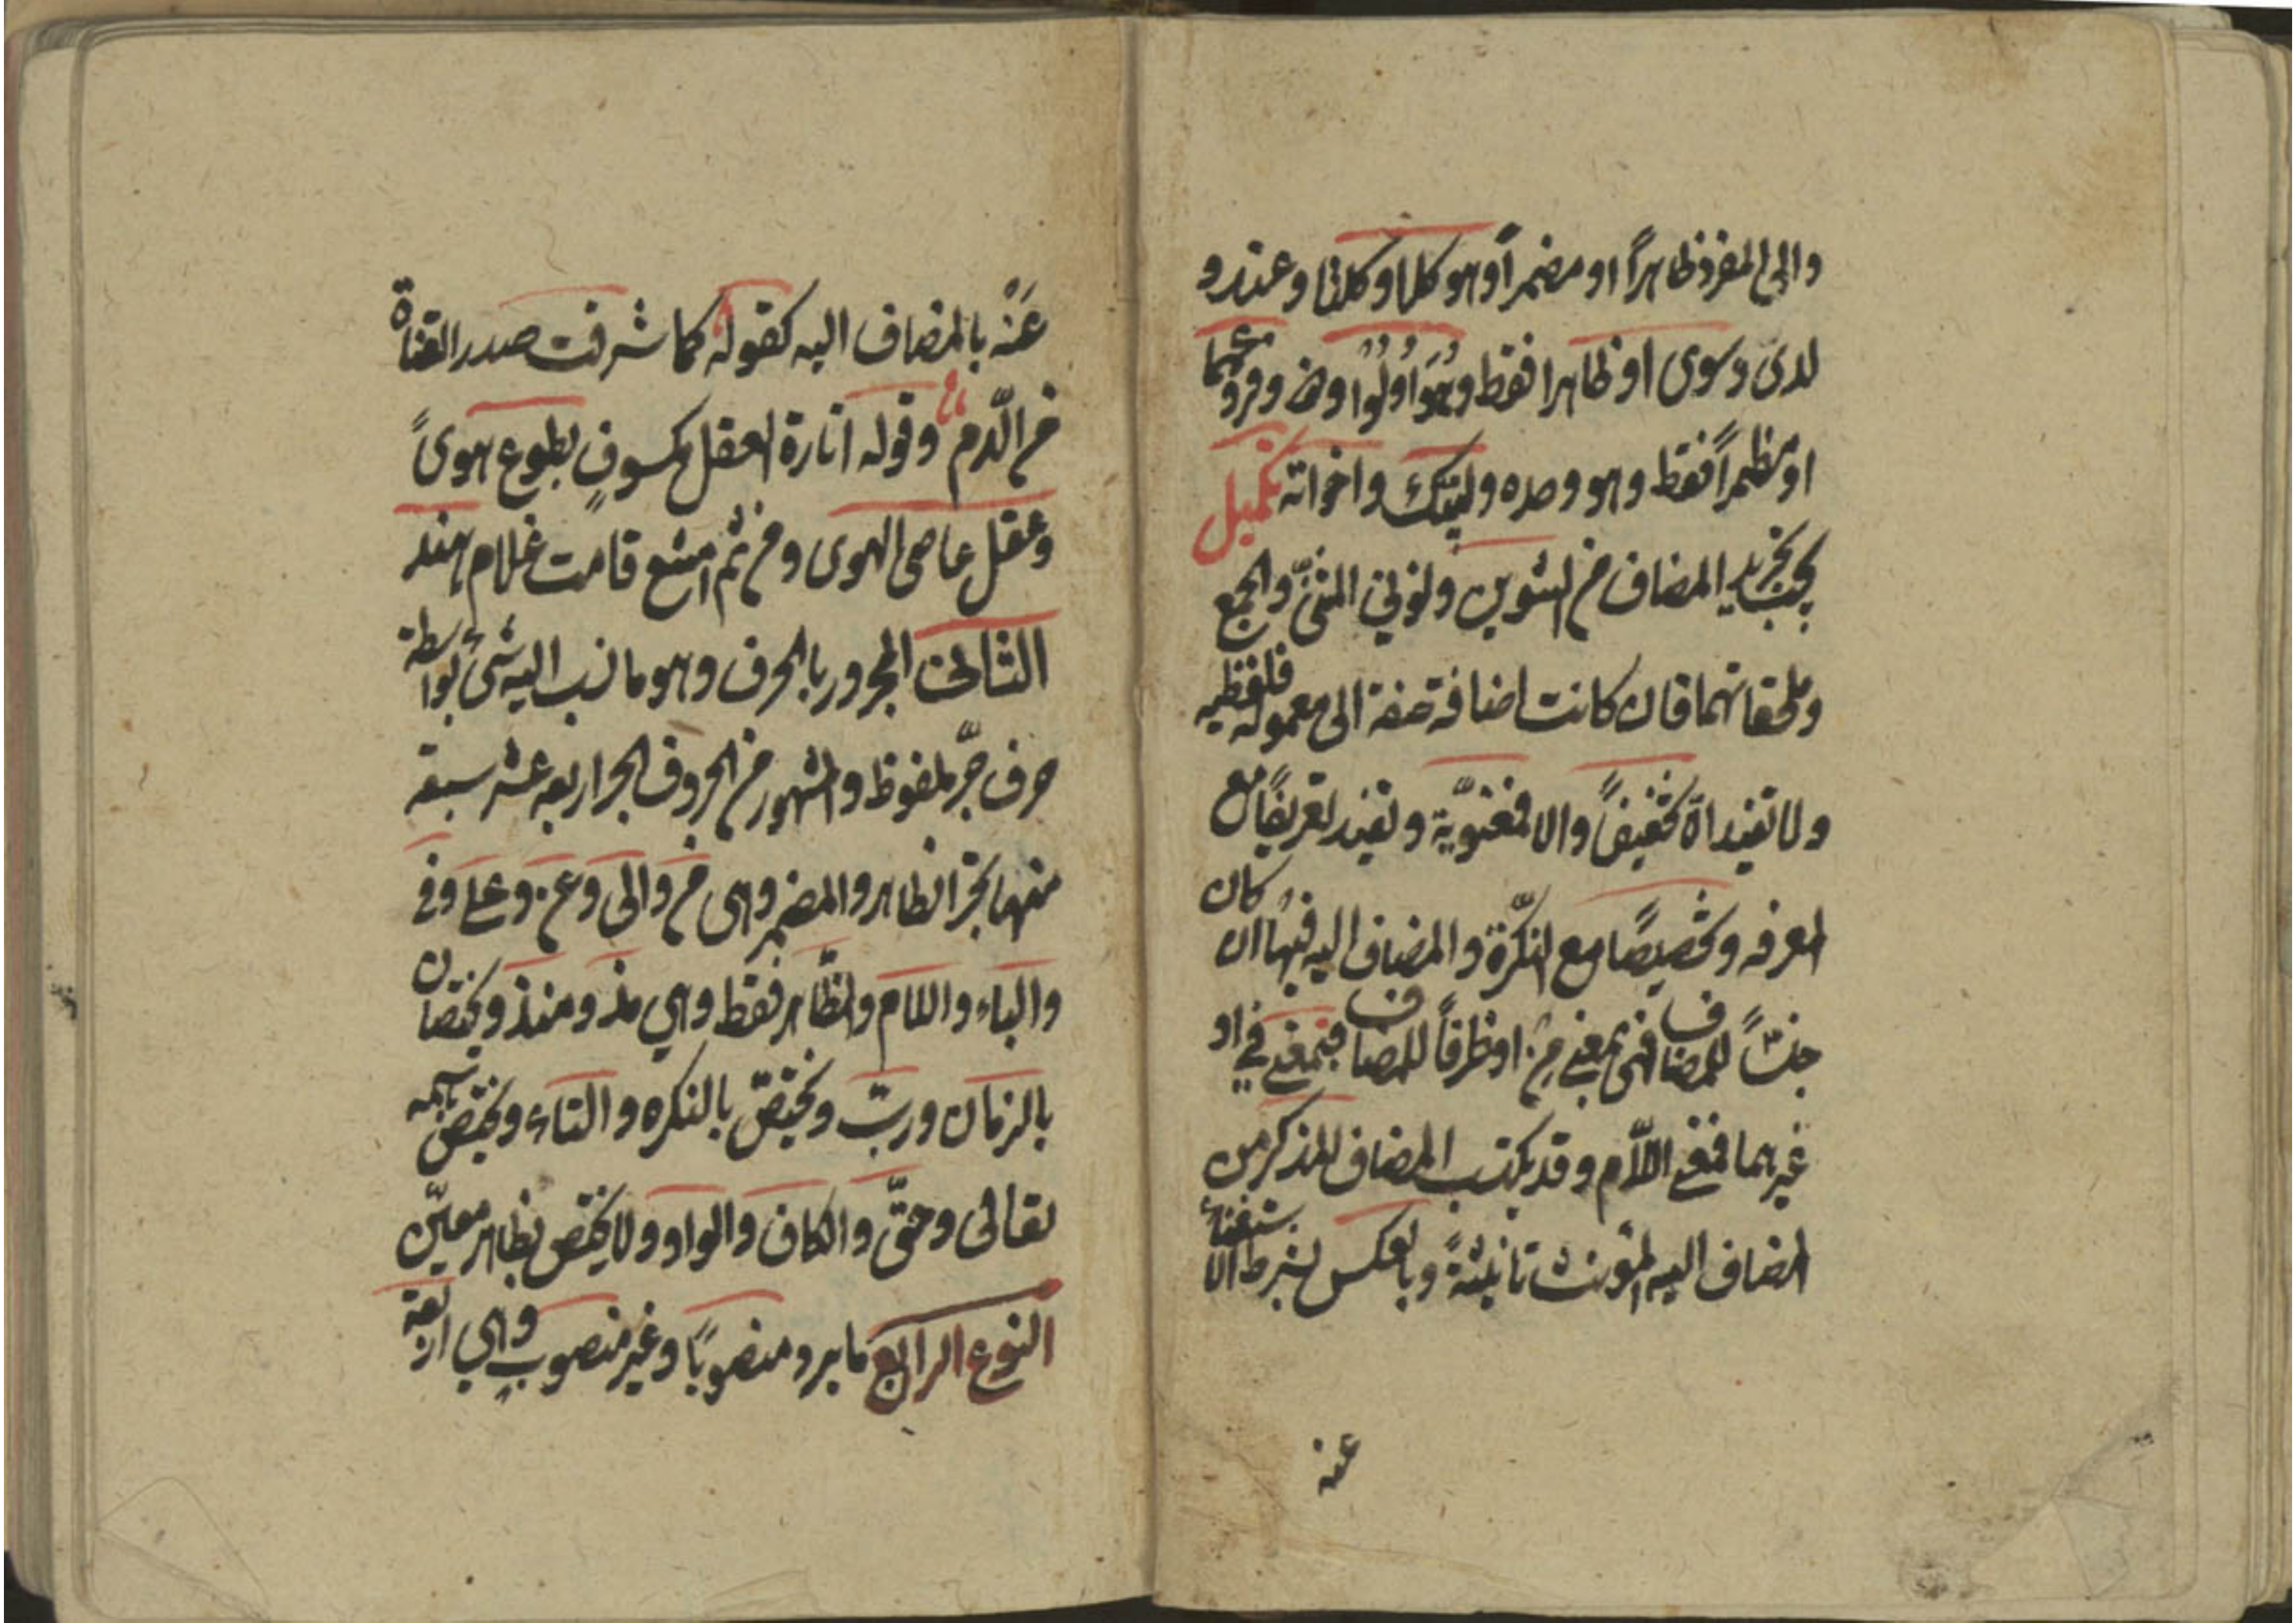 والى المفرد ظاهراً او مضمراً وهو كلا وكلتا وعند و
لدى وسوى او ظاهرا فقط وهو اولوا وذو وفروعهما
او مضمراً فقط وهو وحده ولبيك واخواته تكميل
يجب تجريد المضاف من التنوين ونوني المثنّى والجمع
وملحقاتهما فان كانت اضافة صفة الى معموله فلفظيه
ولا تفيد الّا تخفيفاً والا فمعنويّة وتفيد تعريفاً مع
المعرفه وتخصيصًا مع النكّرة والمضاف اليه فيها ان كان
جنساً للمضاف فهى بمعنى مِن او ظرفاً للمضاف فبمعنى في او
غيرهما فمعنى اللّام وقد يكتسب المضاف المذكر من
المضاف اليه المؤنث تانيثهً وبالعكس بشرط الاستغناء
عنه
عَنْه بالمضاف اليه كقوله كما شرقت صدر القناة
من الّدم وقوله انارة العقل مكسوفٍ بطوع هوىً
وعقل عاصى الهوى ومن ثم امتنع قامت غلام هند
الثالث المجرور بالحرف وهو ما نسب اليه شئ بواسطة
حرف جرّ ملفوظ والمشهور من الحروف الجر اربعه عشر سبعة
منها تجر الظاهر والمضمر وهى من والى وعن وعلى وفى
والباء واللام والظّاهر فقط وهي مذ ومنذ وتختصان
بالزمان وربّ وتختصّ بالنكره والتاء وتختص باسمه
تعالى وحتّى والكاف والواو ولا تختص بظاهر معيّن
النوع الرابع ما يرد منصوباً وغير منصوبٍ وهي اربعة